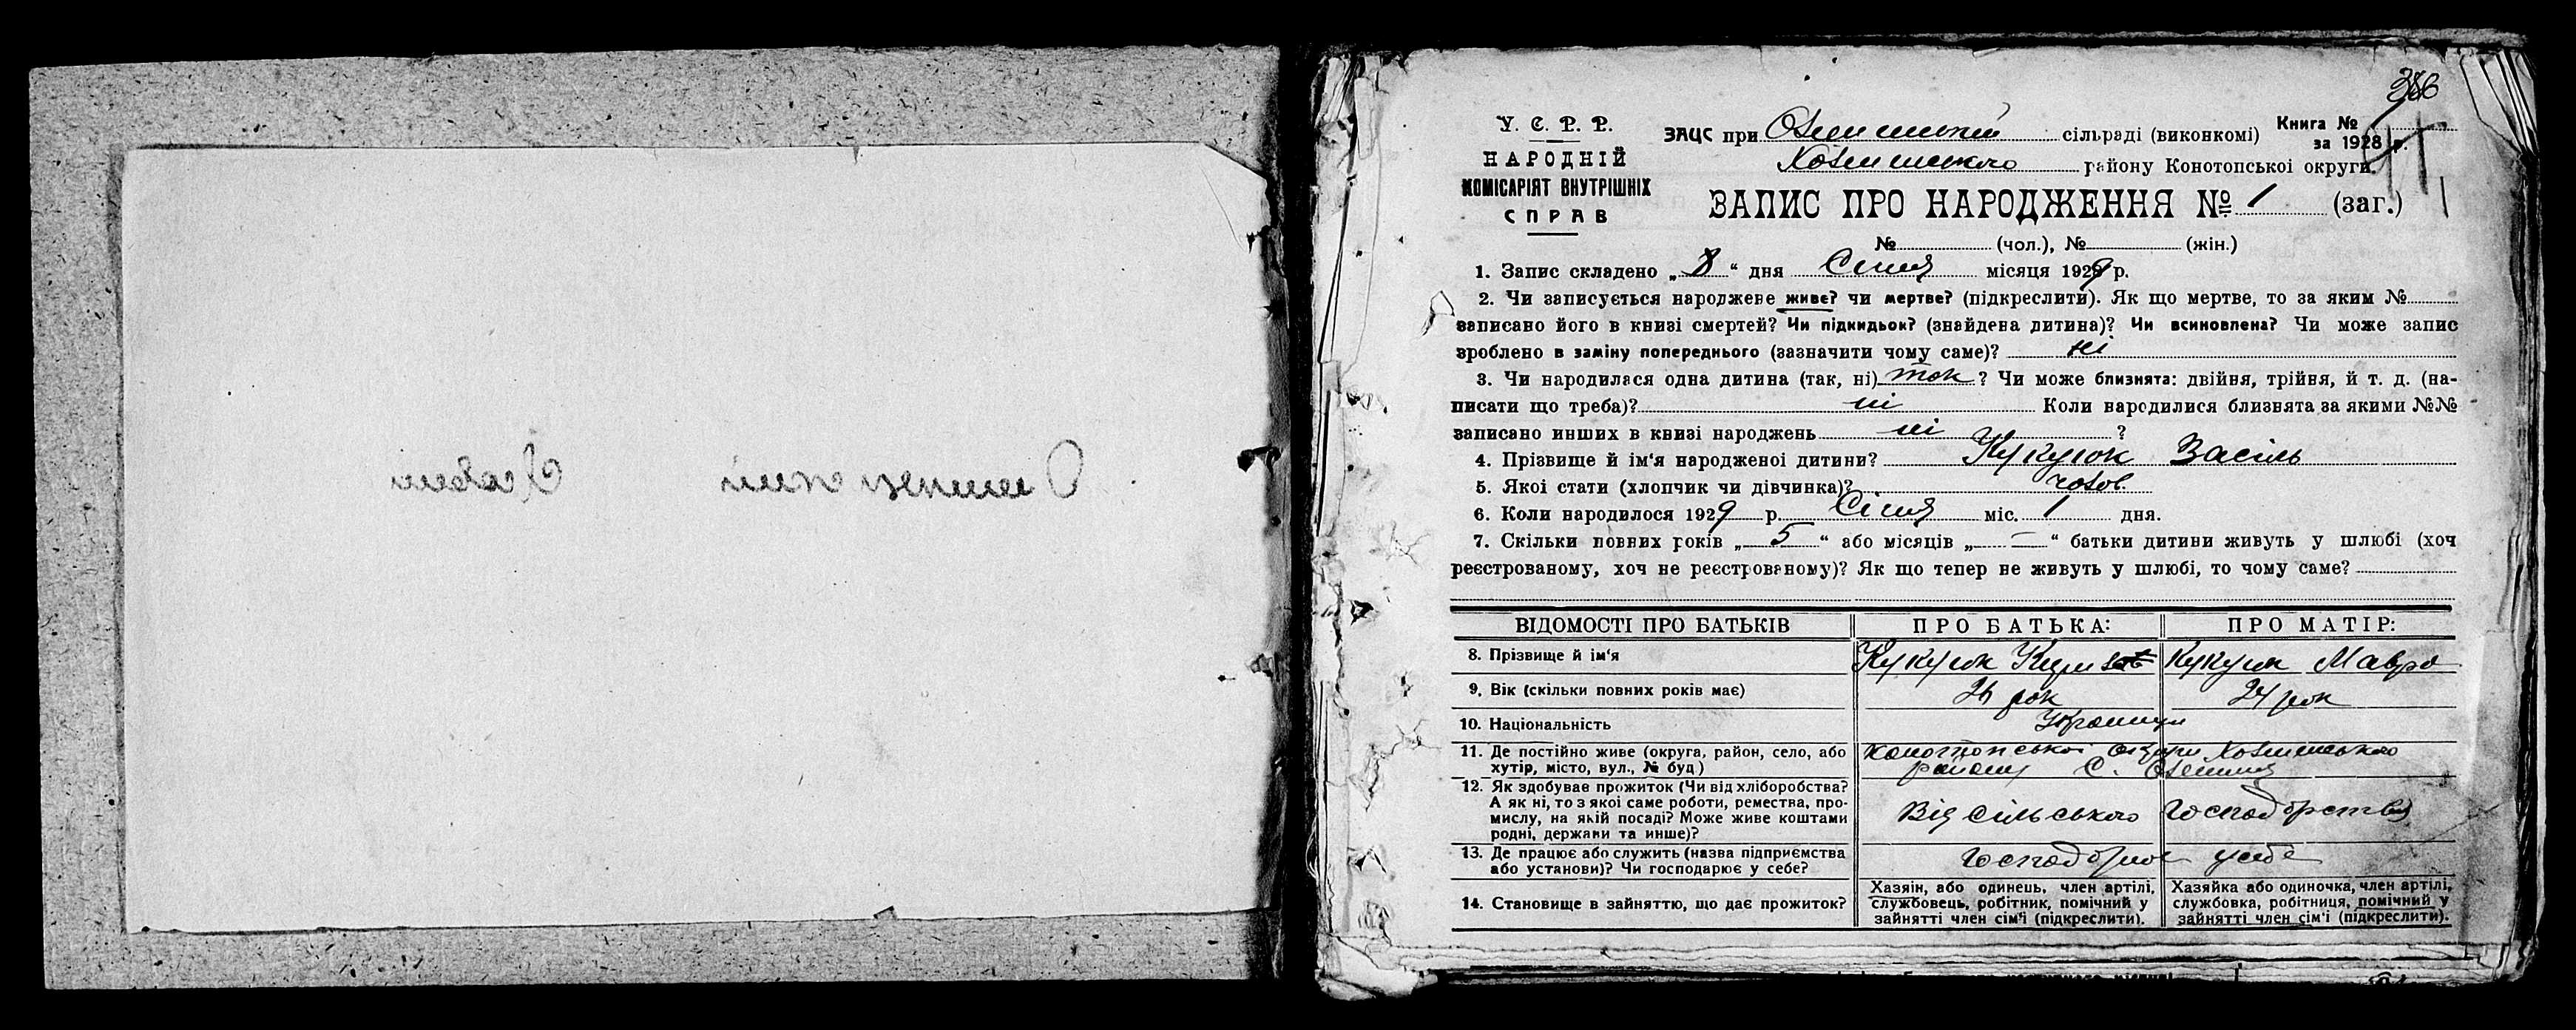 У. С. Р. Р.
НАРОДНІЙ
КОМІСАРІЯТ ВНУТРІШНІХ
СПРАВ
ЗАЦС при сільраді (виконкомі)
Книга №
за 1928 р.
району Конотопської округи.
ЗАПИС ПРО НАРОДЖЕННЯ № 1 (заг.)
№ (чол.), № (жін.)
1. Запис складено „8“ дня Січня місяця 1929 р.
2. Чи записується народжене живе? чи мертве? (підкреслити). Як що мертве, то за яким №
записано його в книзі смертей? Чи підкидьок? (знайдена дитина)? Чи всиновлена? Чи може запис
зроблено в заміну попереднього (зазначити чому саме)? ні
3. Чи народилася одна дитина (так, ні) так? Чи може близнята: двійня, трійня, й т. д. (на-
писати що треба)? ні Коли народилися близнята за якими №№
записано инших в книзі народжень ні ?
4. Прізвище й ім'я народженої дитини? Кукуюк Василь
5. Якої стати (хлопчик чи дівчинка)? чолов.
6. Коли народилося 1929 р. Січня міс. 1 дня.
7. Скільки повних років „5“ або місяців „—“ батьки дитини живуть у шлюбі (хоч
реєстрованому, хоч не реєстрованому)? Як що тепер не живуть у шлюбі, то чому саме?
ВІДОМОСТІ ПРО БАТЬКІВ ПРО БАТЬКА: ПРО МАТІР:
8. Прізвище й ім'я Кукуюк Кукуюк Мавра
9. Вік (скільки повних років має) 26 рок 24 рок
10. Національність
11. Де постійно живе (округа, район, село, або
хутір, місто, вул., № буд)
Конотопської округи
району С.
12. Як здобуває прожиток (Чи від хліборобства?
А як ні, то з якої саме роботи, ремества, про-
мислу, на якій посаді? Може живе коштами
родні, держави та инше)?
Від сільського господарства
13. Де працює або служить (назва підприємства
або установи)? Чи господарює у себе?
Господарює у себе
14. Становище в зайняттю, що дає прожиток?
Хазяін, або одинець, член артілі,
службовець, робітник, помічний у
зайнятті член сім'ї (підкреслити).
Хазяйка або одиночка, член артілі,
службовка, робітниця, помічний у
зайнятті член сім'ї (підкреслити).